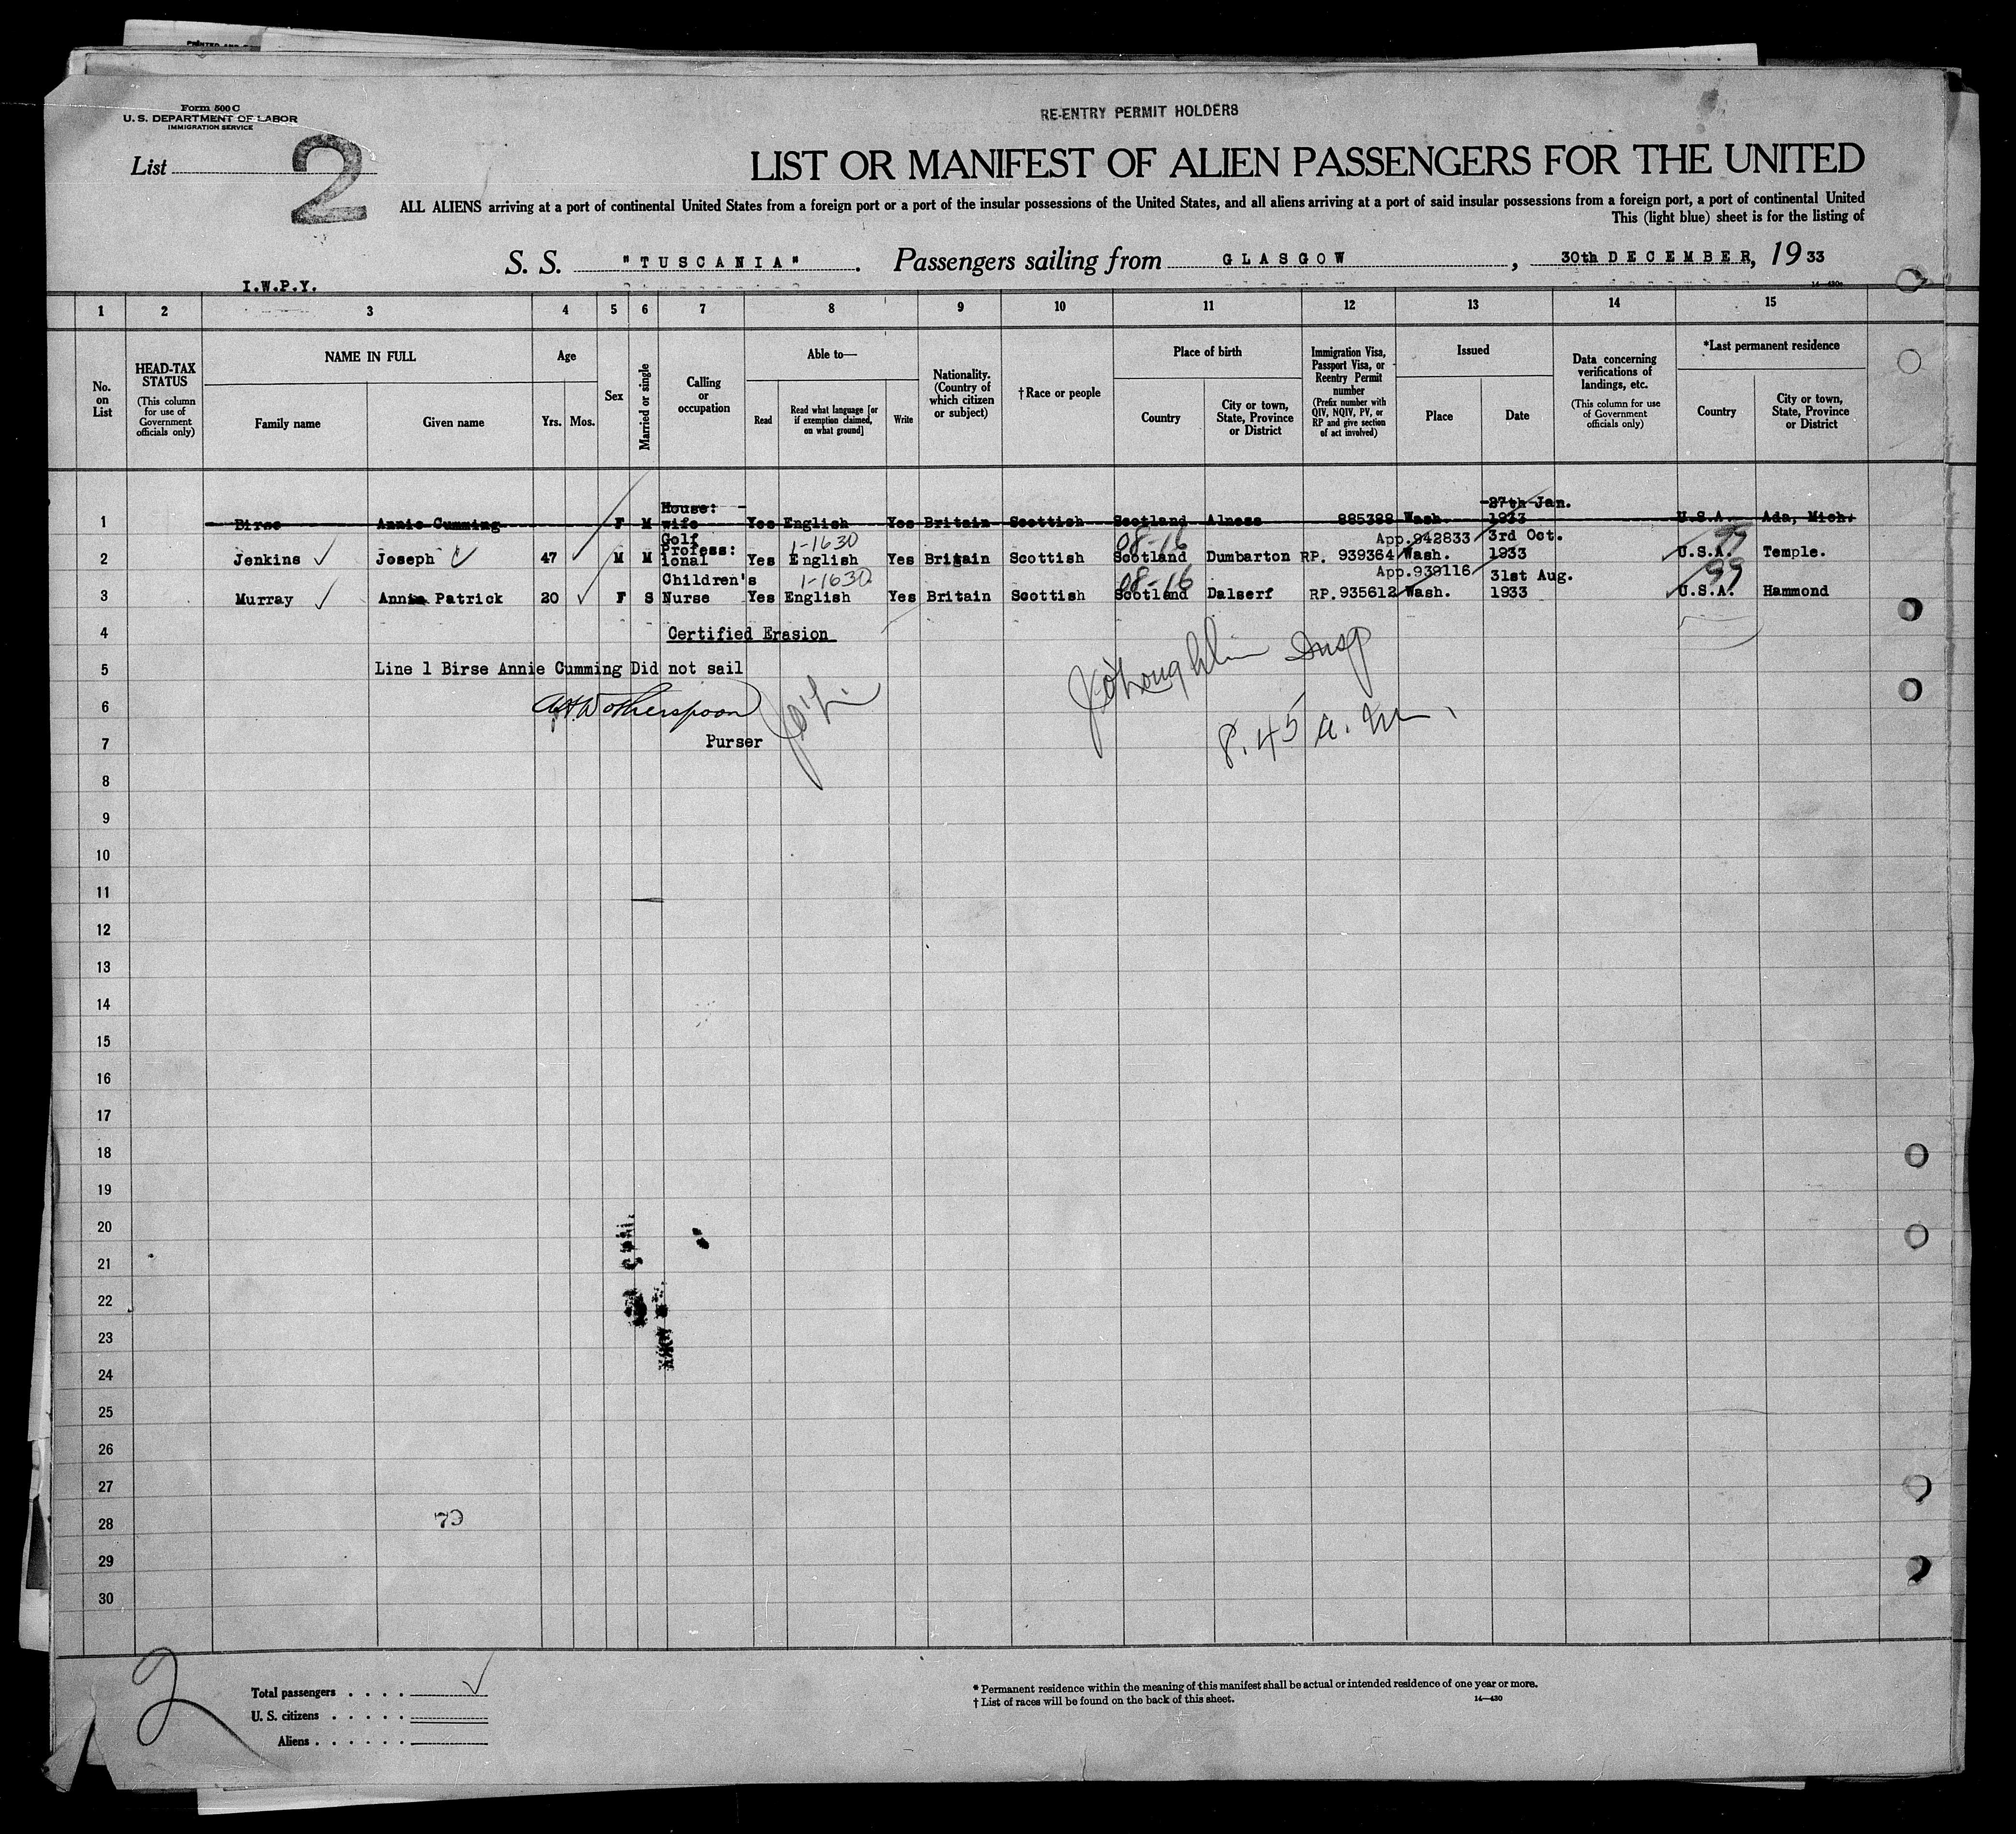 Form 500 C
U. S. DEPARTMENT OF LABOR
IMMIGRATION SERVICE
RE-ENTRY PERMIT HOLDERS
List 2
LIST OR MANIFEST OF ALIEN PASSENGERS FOR THE UNITED
ALL ALIENS arriving at a port of continental United States from a foreign port or a port of the insular possessions of the United States, and all aliens arriving at a port of said insular possessions from a foreign port, a port of continental United
This (light blue) sheet is for the listing of
S. S. "TUSCANIA". Passengers sailing from GLASGOW, 30th DECEMBER, 19 33
I.W.P.Y.
14—430
1 2 3 4 5 6 7 8 9 10 11 12 13 14 15
No. on List
HEAD-TAX STATUS (This column for use of Government officials only)
NAME IN FULL
Family name
Given name
Age
Yrs. Mos.
Sex
Married or single
Calling or occupation
Able to—
Read
Read what language [or if exemption claimed, on what ground]
Write
Nationality. (Country of which citizen or subject)
†Race or people
Place of birth
Country
City or town, State, Province or District
Immigration Visa, Passport Visa, or Reentry Permit number (Prefix number with QIV, NQIV, PV, or RP and give section of act involved)
Issued
Place
Date
Data concerning verifications of landings, etc. (This column for use of Government officials only)
*Last permanent residence
Country
City or town, State, Province or District
1 Birse Annie Cumming F M House: wife Yes English Yes Britain Scottish Scotland Alness 885388 Wash. 27th Jan. 1933 U.S.A. Ada, Mich.
1-1630 08-16 App.942833 99
2 Jenkins Joseph 47 M M Golf Profess: ional Yes English Yes Britain Scottish Scotland Dumbarton RP. 939364 Wash. 3rd Oct. 1933 U.S.A. Temple.
1-1630 08-16 App.939116 99
3 Murray Annie Patrick 20 F S Children's Nurse Yes English Yes Britain Scottish Scotland Dalserf RP.935612 Wash. 31st Aug. 1933 U.S.A. Hammond
4 Certified Erasion
5 Line 1 Birse Annie Cumming Did not sail
6 Wotherspoon
7 Purser
Insp
8.45 a.m.
8
9
10
11
12
13
14
15
16
17
18
19
20
21
22
23
24
25
26
27
28
29
30
2
Total passengers
U. S. citizens
Aliens
* Permanent residence within the meaning of this manifest shall be actual or intended residence of one year or more.
† List of races will be found on the back of this sheet.
14—430